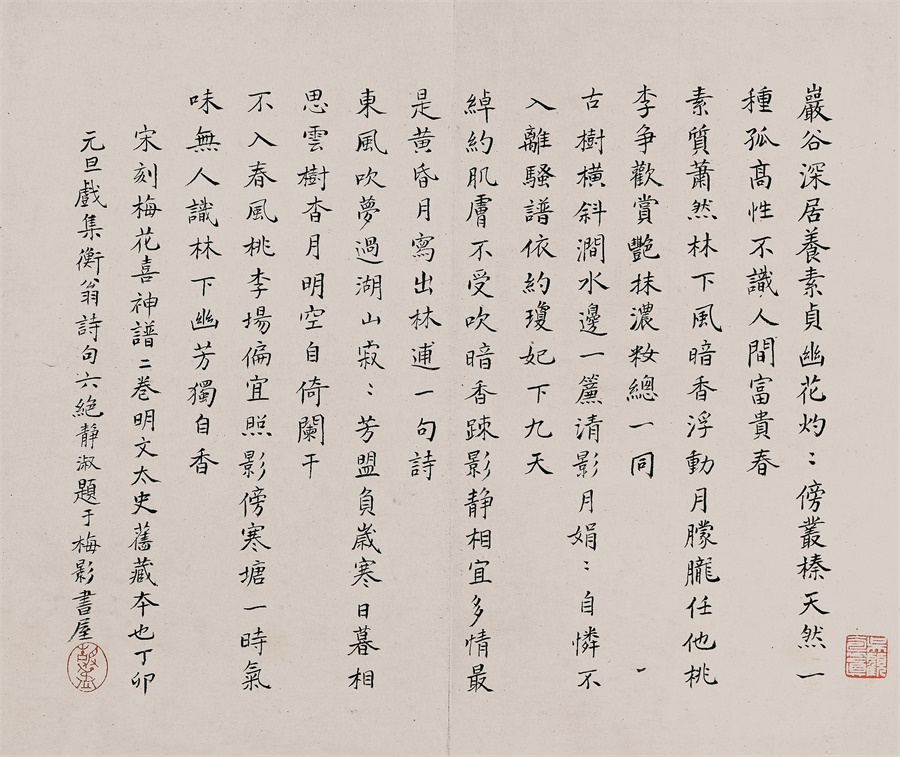 巖谷深居養素貞幽花灼〻傍叢榛天然一
種孤高性不識人間富貴春
素質蕭然林下風暗香浮動月朦朧任他桃
李争歡賞艷抹濃妝總一同
古樹橫斜澗水邊一簾清影月娟〻自憐不
入離騷譜依約瓊妃下九天
綽約肌膚不受吹暗香踈影静相宜多情最
是黄昏月寫出林逋一句詩
東風吹夢過湖山寂〻芳盟負歲寒日暮相
思雲樹杳月明空自倚闌干
不入春風桃李場偏宜照影傍寒塘一時氣
味無人識林下幽芳獨自香
宋刻梅花喜神譜二卷明文太史舊藏本也丁卯
元旦戲集衡翁詩句六絶静淑題于梅影書屋